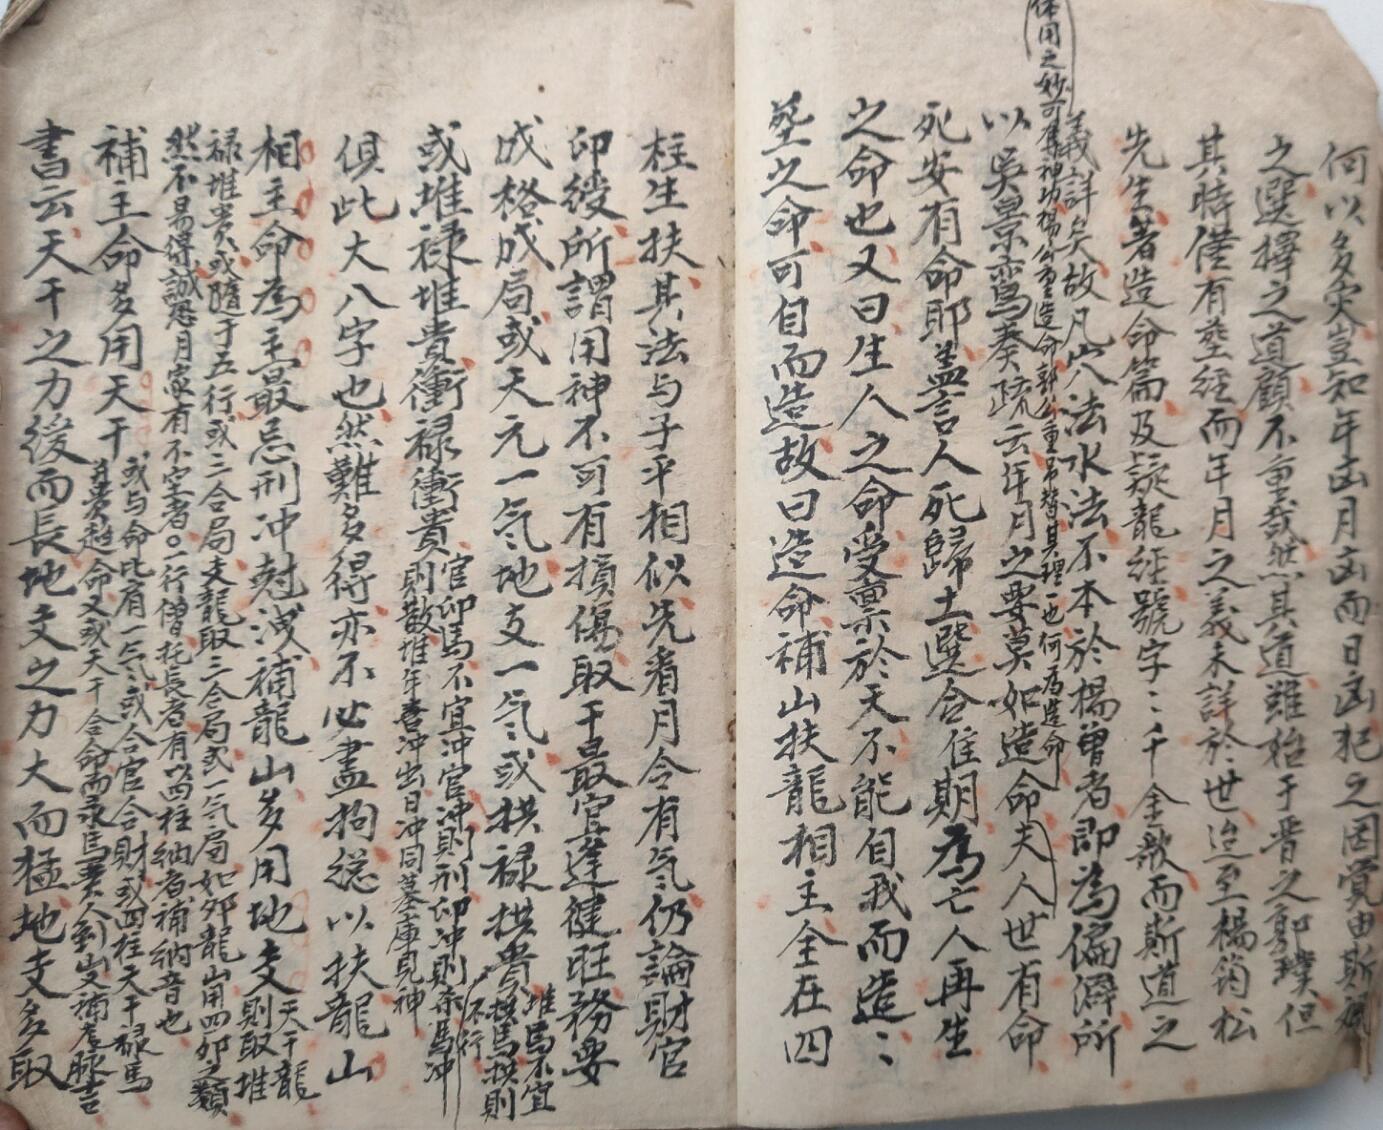 何以多灾豈知年凶月凶而日凶犯之因實由斯
之選擇之道顧不重哉然其道雖始于晋之郭璞但
其時僅有塟經而年月之義未詳於世迨至楊筠松
先生著造命篇及疑龍經號字〻千金歌而斯道之
義詳矣故凡穴法水法不本於楊曾者即為偏僻所
体用之妙可奪神功楊公重造命郭公重吊替其理一也何為造命
以吳景鸞奏疏云年月之要莫如造命夫人世有命
死安有命耶盖言人死歸土選合佳期為亡人再生
之命也又曰生人之命受稟於天不能自我而造〻
塟之命可自而造故曰造命補山扶龍相主全在四
柱生扶其法与子平相似先看月令有气仍論財官
印綬所謂用神不可有損傷取干最宜達健旺務要
成格成局或天元一气地支一气或拱禄拱貴
堆馬不宜
拱馬拱則
不行
或堆禄堆貴衝禄衝貴
官印馬不宜冲官冲則刑印冲則馬冲
則散堆年喜冲出日冲同墓庫見神
俱此大八字也然難多得亦不必盡拘總以扶龍山
相主命為主最忌刑冲尅洩補龍山多用地支
天干龍
則取堆
禄堆貴或隨于五行或三合局支龍取三合局或一气局如卯龍山用四卯之類
然不易得誠恐月家有不空者○一行僧托長者有以四柱納者補納音也
補主命多用天干
或与命比肩一气或合官合財或四柱天干禄馬
貴趋命又或天干合命而禄馬貴人到山又補脉吉
書云天干之力緩而長地支之力大而猛地支多取